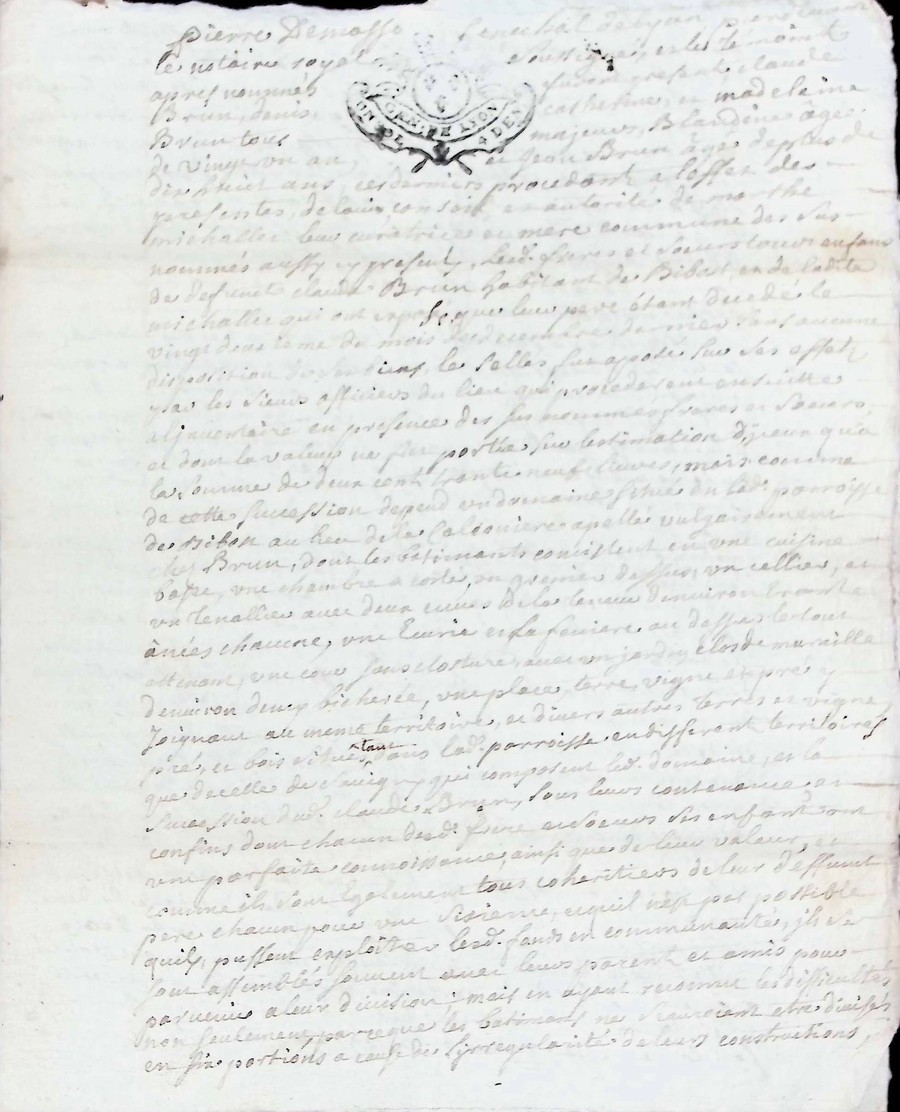 pierre Demasso Senechal de Lyon pardevant
le notaire royal soussigné, et les témoins
apres nommés furent present claude
Brun, denis, catherine, et madelaine
Brun tous majeurs, Blandine âgée
de vingt un an, et Jean Brun âgé de plus de
dix huit ans, ces derniers procedant a l'effet des
presentes, de l'avis, conseil et autorité de marthe
michallet leur curatrice et mere commune des sus
nommés aussy cy presents, lesd. freres et soeurs tous enfans
de deffunt claude Brun habitant de Bibost, et de ladite
michallet qui ont exposé que leur pere étant decedé le
vingt deuxieme du mois de decembre dernier sans aucune
disposition de ses biens, les selles fut apposé sur ses effets
par les sieurs officiers du lieu qui procederent ensuitte
a l'inventaire en presence des sus nommés freres et soeurs
et dont la valeur ne fut portée sur l'estimation d'yceux qu'a
la somme de deux cent trante neuf livres, mais comme
de cette succession depend un domaine situé en lad. parroisse
de Bibost au lieu de la apellé vulgairement
chez Brun, dont les bâtimants consistent en une cuisine
basse, une chambre a costé, un grenier dessus, un cellier, et
un Tenallier avec deux cuves de la teneur d'environ trante
ânées chacune, une Ecurie et la feniere au dessus le tout
attenant, une cour sans closture, avec un jardin clos de muraille
d'environ demy bicherée, une place, terre, vigne et pré y
Joignant au meme territoire, et divers autres terres et vigne
pré, et bois situés tant dans lad. parroisse en different territoires
que de celle de Savigny qui composent led. domaine, et la
succession dud. claude Brun, sous leurs contenance et
confins dont chacun desd. frere et soeurs ses enfant ont
une parfaite connoissance, ainsi que de leur valeur, et
comme ils sont Egalement tous coheritiers de leur deffunt
pere chacun pour une sixieme, et qu'il n'est pas possible
qu'ils puissent exploiter lesd. fonds en communautés, ils se
sont assemblés souvent avec leurs parent et amis pour
parvenir a leur division; mais en ayant reconnut les difficultés
non seulement parceque les bâtimans ne scauroient etre divisés
en six portions a cause des irregularité de leurs constructions,